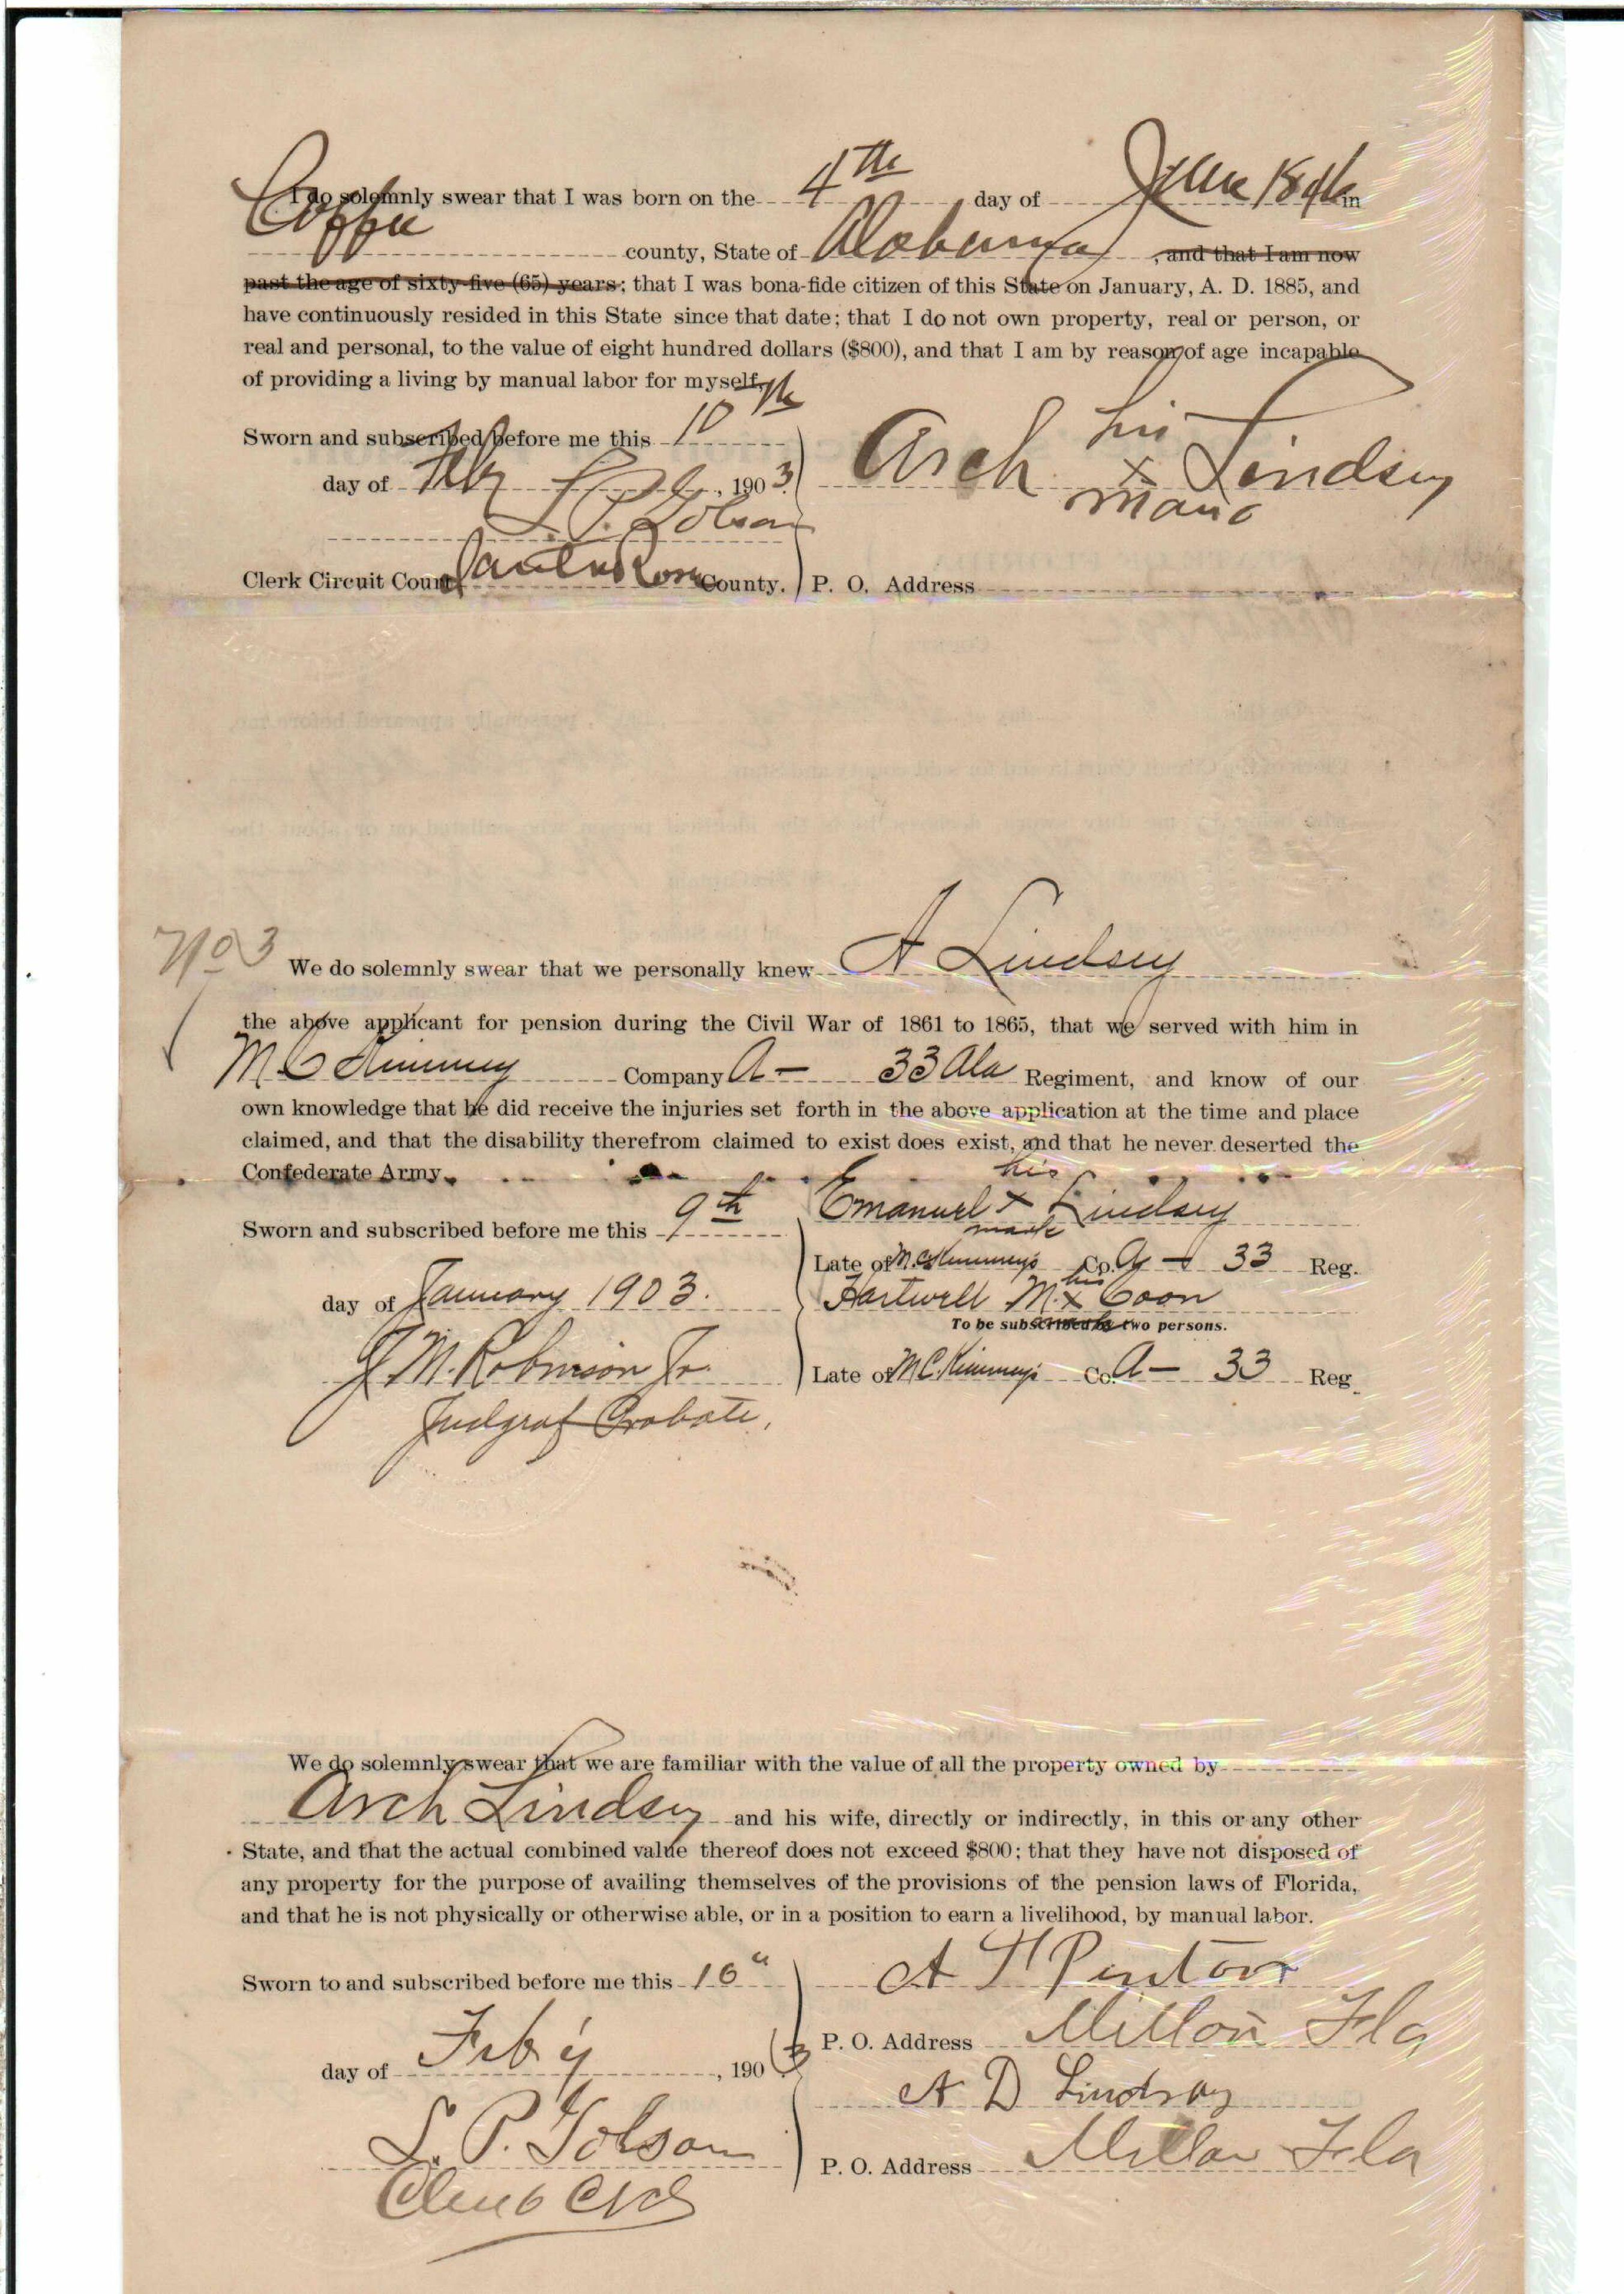 I do solemnly swear that I was born on the 4th day of June 184 in
Coffee county, State of Alabama, and that I am now
past the age of sixty-five (65) years; that I was bona-fide citizen of this State on January, A. D. 1885, and
have continuously resided in this State since that date; that I do not own property, real or person, or
real and personal, to the value of eight hundred dollars ($800), and that I am by reason of age incapable
of providing a living by manual labor for myself.
Sworn and subscribed before me this 10th
day of Feby, 1903.
his
Arch x Lindsey
mark
L. P. Golson
Clerk Circuit Court Santa Rosa County.
P. O. Address
No 3
We do solemnly swear that we personally knew A Lindsey
the above applicant for pension during the Civil War of 1861 to 1865, that we served with him in
McKimmey Company A – 33 Ala Regiment, and know of our
own knowledge that he did receive the injuries set forth in the above application at the time and place
claimed, and that the disability therefrom claimed to exist does exist, and that he never deserted the
Confederate Army.
Sworn and subscribed before me this 9th
day of January 1903.
J M. Robinson Jr.
Judge of Probate,
his
Emanuel x Lindsey
mark
Late of McKimmey's Co. A – 33 Reg.
his
Hartwell M. x Coon
mark
To be subscribed by two persons.
Late of McKimmey's Co. A – 33 Reg.
We do solemnly swear that we are familiar with the value of all the property owned by
Arch Lindsey and his wife, directly or indirectly, in this or any other
State, and that the actual combined value thereof does not exceed $800; that they have not disposed of
any property for the purpose of availing themselves of the provisions of the pension laws of Florida,
and that he is not physically or otherwise able, or in a position to earn a livelihood, by manual labor.
Sworn to and subscribed before me this 10"
day of Feb'y, 1903
L. P. Golson
Clerk
A Penton
P. O. Address Milton Fla
A D Lindsey
P. O. Address Milton Fla